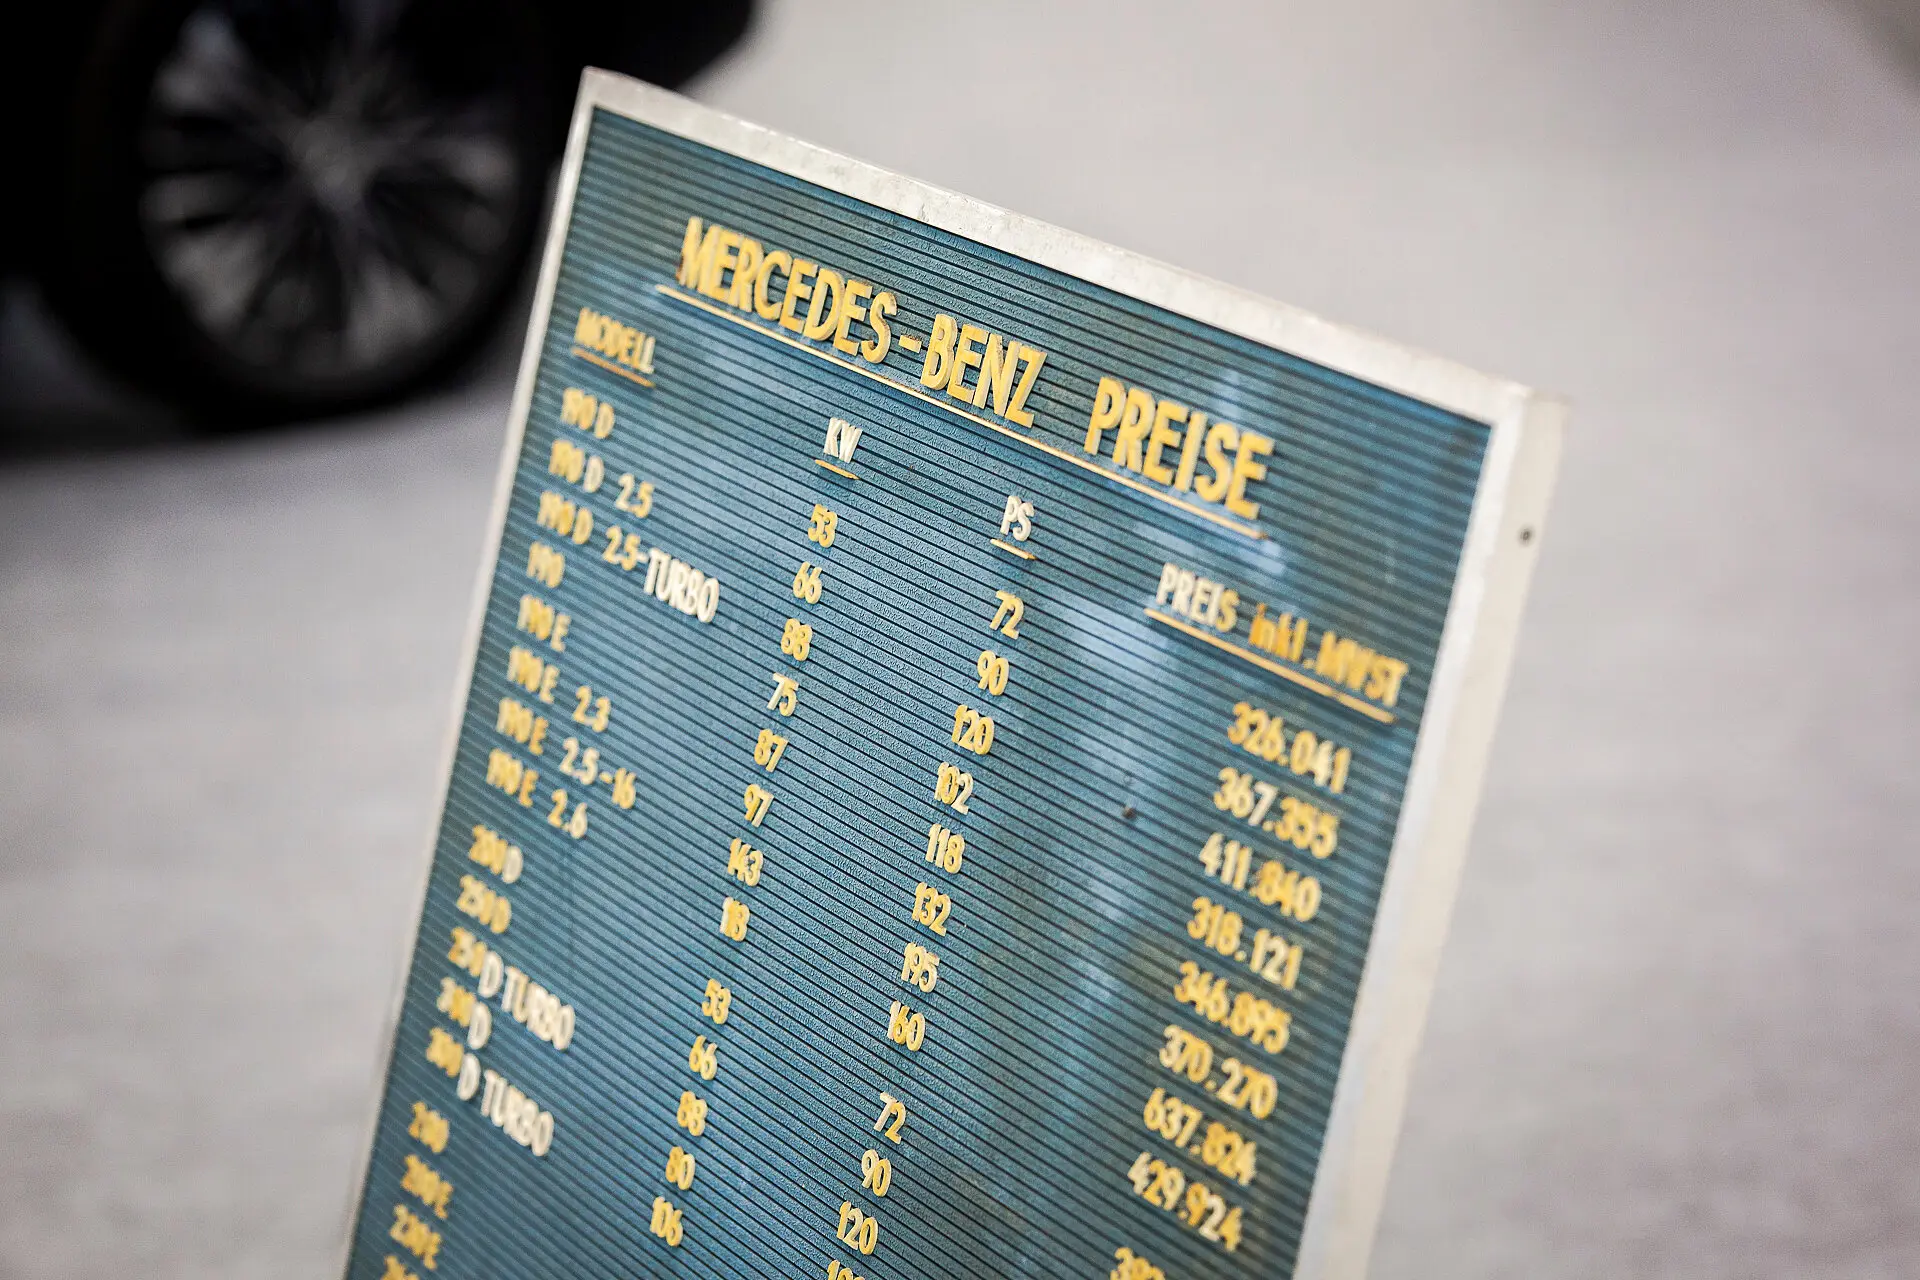 MERCEDES-BENZ PREISE
MODELL KW PS PREIS inkl.MWST
190 D 53 72 326.041
190 D 2.5 66 90 367.355
190 D 2.5-TURBO 88 120 411.840
190 75 102 318.121
190 E 87 118 346.895
190 E 2.3 97 132 370.270
190 E 2.5-16 143 195 637.824
190 E 2.6 118 160 429.924
200 D 53 72
250 D 66 90
250 D TURBO 88 120
300 D 80
300 D TURBO 106
200
200 E
230 E